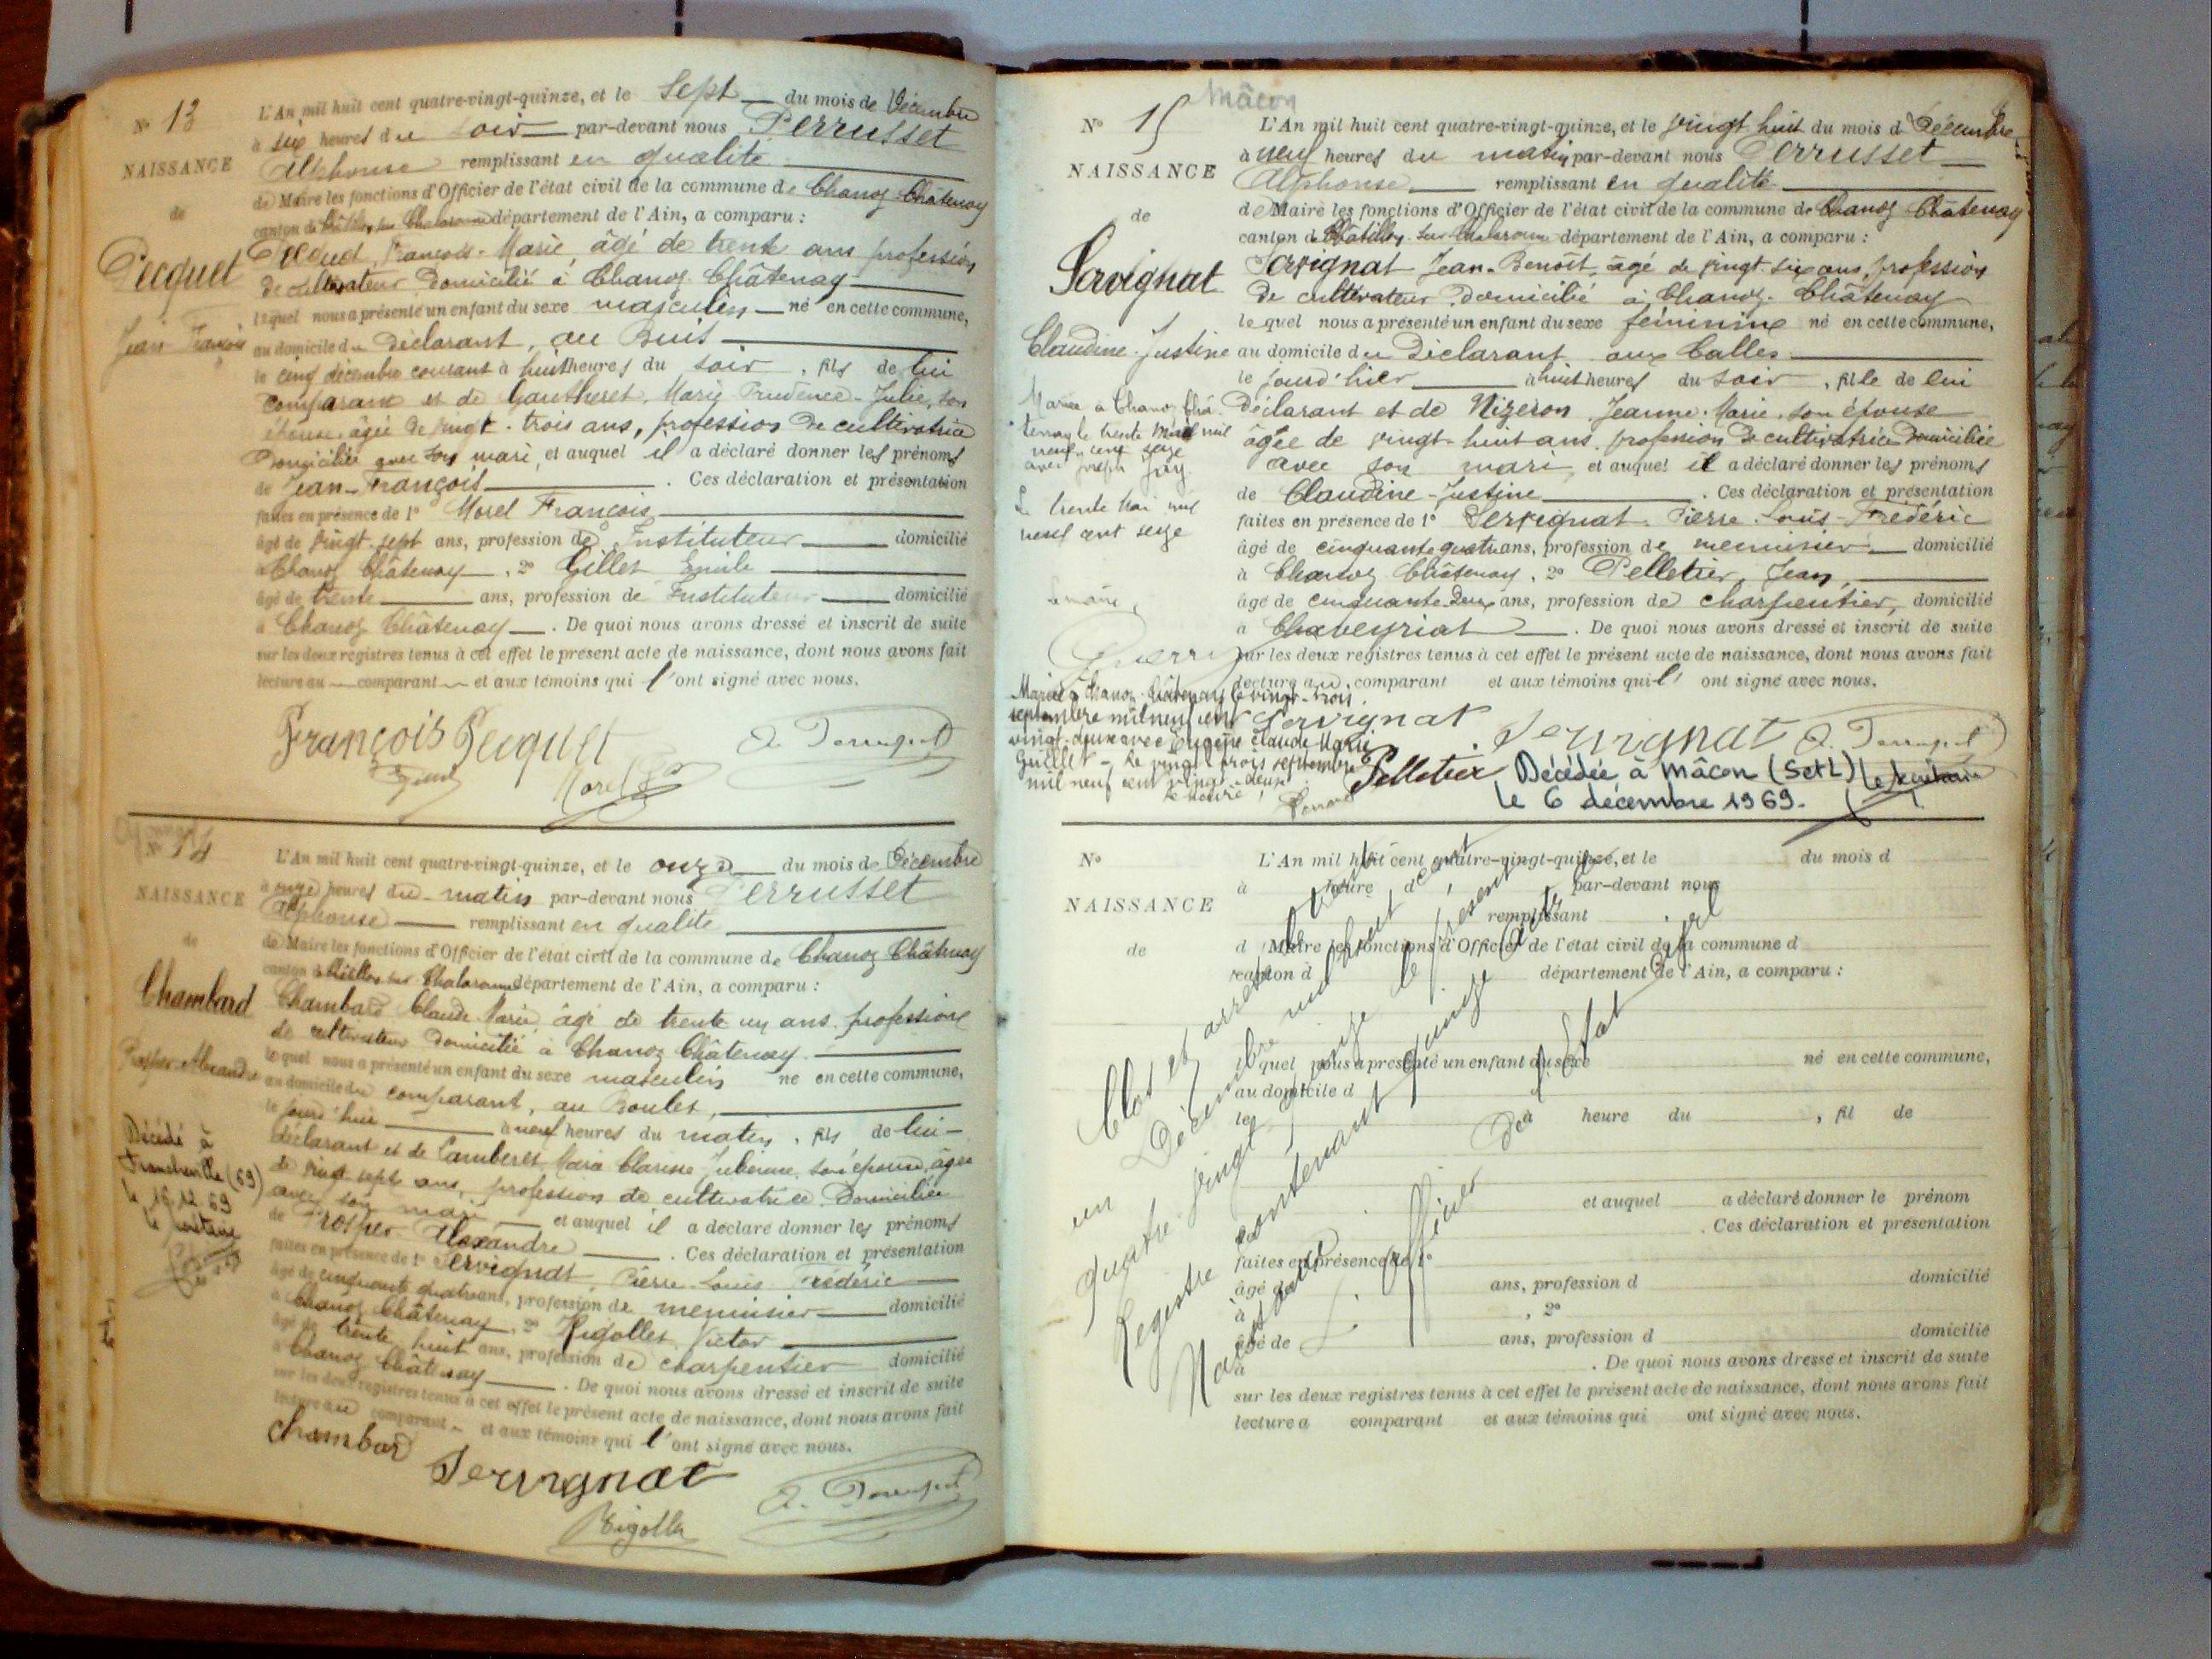 N° 13
NAISSANCE
de
Pecquet
Jean François
L'An mil huit cent quatre-vingt-quinze, et le Sept du mois de Décembre
à six heures du soir par-devant nous Perrusset
Alphonse remplissant en qualité
de Maire les fonctions d'Officier de l'état civil de la commune de Chanoz-Châtenay
canton de Châtillon sur Chalaronne département de l'Ain, a comparu :
Pecquet François-Marie âgé de trente ans profession
de cultivateur domicilié à Chanoz-Châtenay
lequel nous a présenté un enfant du sexe masculin né en cette commune,
au domicile du Déclarant, au Buis
le cinq décembre courant à huit heures du soir, fils de lui
comparant et de Gautheret, Marie Prudence-Julie, son
épouse âgée de vingt-trois ans, profession de cultivatrice
domiciliée avec son mari, et auquel il a déclaré donner les prénoms
de Jean-François. Ces déclaration et présentation
faites en présence de 1° Morel François,
âgé de vingt-sept ans, profession de Instituteur domicilié
à Chanoz Châtenay, 2° Gillet Emile
âgé de trente ans, profession de Instituteur domicilié
à Chanoz Châtenay. De quoi nous avons dressé et inscrit de suite
sur les deux registres tenus à cet effet le présent acte de naissance, dont nous avons fait
lecture au comparant et aux témoins qui l'ont signé avec nous.
François Pecquet
Morel
N° 14
NAISSANCE
de
Chambard
Prosper-Alexandre
Décédé à
Francheville (69)
le 16.12.69
L'An mil huit cent quatre-vingt-quinze, et le onze du mois de Décembre
à onze heures du matin par-devant nous Perrusset
Alphonse remplissant en qualité
de Maire les fonctions d'Officier de l'état civil de la commune de Chanoz Châtenay
canton de Châtillon sur Chalaronne département de l'Ain, a comparu :
Chambard Claude Marie âgé de trente un ans profession
de cultivateur domicilié à Chanoz Châtenay.
lequel nous a présenté un enfant du sexe masculin né en cette commune,
au domicile du comparant, au Boulet,
le jourd'hui à neuf heures du matin, fils de lui
déclarant et de Lamberet Marie Clarisse son épouse, âgée
de vingt sept ans, profession de cultivatrice domiciliée
avec son mari et auquel il a déclaré donner les prénoms
de Prosper Alexandre. Ces déclaration et présentation
faites en présence de 1° Servignat, Pierre Louis Frédéric
âgé de cinquante quatre ans, profession de menuisier domicilié
à Chanoz Châtenay, 2° Rigollet Victor
âgé de trente huit ans, profession de charpentier domicilié
à Chanoz Châtenay. De quoi nous avons dressé et inscrit de suite
sur les deux registres tenus à cet effet le présent acte de naissance, dont nous avons fait
lecture au comparant et aux témoins qui l'ont signé avec nous.
Chambard
Servignat
Rigollet
Mâcon
N° 15
NAISSANCE
de
Servignat
Claudine-Justine
Mariée à Chanoz Châ-
tenay le trente Mai mil
neuf cent seize
avec Joseph Jay.
Le trente Mai mil
neuf cent seize
Le maire,
Mariée à Chanoz-Châtenay le vingt-trois
septembre mil neuf cent
vingt-deux avec Eugène Claude Marie
Guillet - Le vingt trois septembre
mil neuf cent vingt-deux
Le Maire,
L'An mil huit cent quatre-vingt-quinze, et le vingt huit du mois de Décembre
à neuf heures du matin par-devant nous Perrusset
Alphonse remplissant en qualité
de Maire les fonctions d'Officier de l'état civil de la commune de Chanoz Châtenay
canton de Châtillon sur Chalaronne département de l'Ain, a comparu :
Servignat Jean-Benoît âgé de vingt-six ans, profession
de cultivateur domicilié à Chanoz-Châtenay
lequel nous a présenté un enfant du sexe féminine né en cette commune,
au domicile du Déclarant aux Calles
le jourd'hier à huit heures du soir, fille de lui
déclarant et de Nizeron Jeanne-Marie, son épouse
âgée de vingt-huit ans profession de cultivatrice domiciliée
avec son mari et auquel il a déclaré donner les prénoms
de Claudine-Justine. Ces déclaration et présentation
faites en présence de 1° Servignat Pierre Louis-Frédéric
âgé de cinquante quatre ans, profession de menuisier domicilié
à Chanoz Châtenay, 2° Pelletier, Jean,
âgé de cinquante deux ans, profession de charpentier, domicilié
à Chaveyriat. De quoi nous avons dressé et inscrit de suite
sur les deux registres tenus à cet effet le présent acte de naissance, dont nous avons fait
lecture au comparant et aux témoins qui l' ont signé avec nous.
Servignat Servignat
Pelletier
Décédée à Mâcon (S et L)
le 6 décembre 1969.
N°
NAISSANCE
de
L'An mil huit cent quatre-vingt-quinze, et le du mois d
à heure d par-devant nous
remplissant
d Maire les fonctions d'Officier de l'état civil de la commune d
canton d département de l'Ain, a comparu :
quel nous a présenté un enfant du sexe né en cette commune,
au domicile d
le à heure du , fil de
et auquel a déclaré donner le prénom
. Ces déclaration et présentation
faites en présence de 1°
âgé de ans, profession d domicilié
à , 2°
âgé de ans, profession d domicilié
à . De quoi nous avons dressé et inscrit de suite
sur les deux registres tenus à cet effet le présent acte de naissance, dont nous avons fait
lecture a comparant et aux témoins qui ont signé avec nous.
Clos et arrêté le trente
un Décembre mil huit cent
quatre vingt quinze le présent
Registre contenant quinze actes de
Naissance
L'Officier de l'Etat Civil